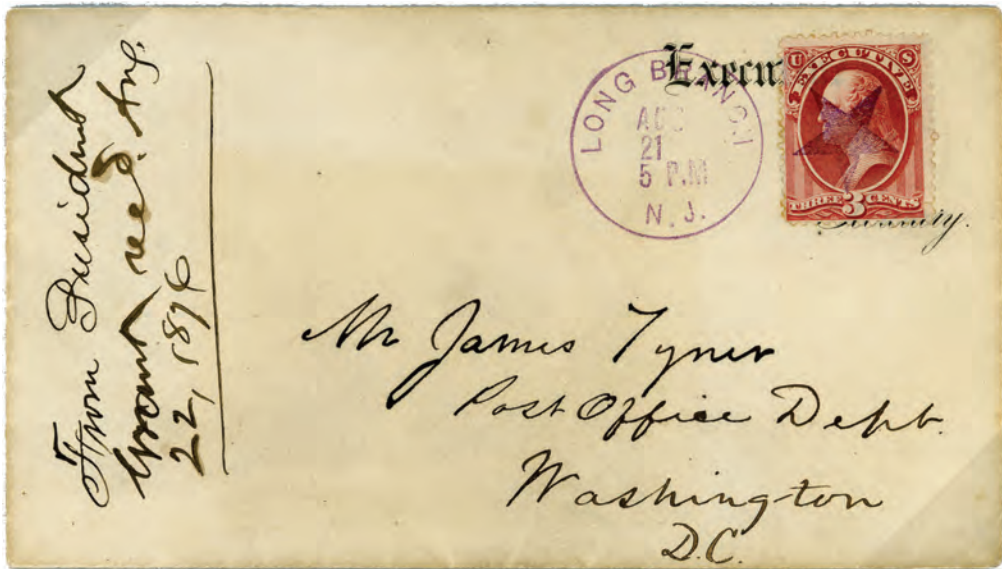 From President
Grant rec'd. Aug.
22, 1876
Execu
LONG BRANCH
AUG
21
5 P.M
N. J.
U S
EXECUTIVE
THREE 3 CENTS
Mr James Tyner
Post Office Dept.
Washington
D.C.